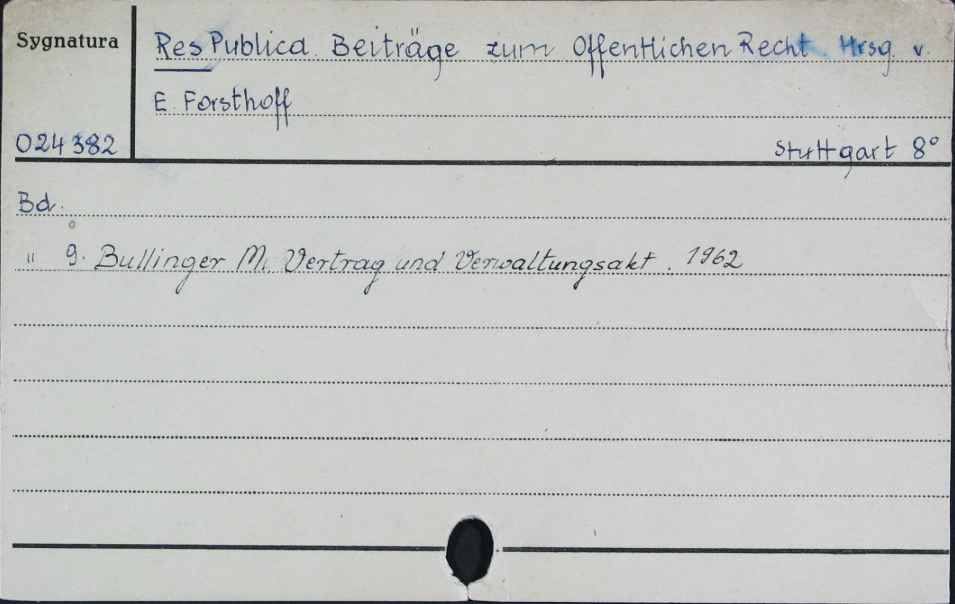 Sygnatura
Res Publica. Beiträge zum Offentlichen Recht. Hrsg. v.
E. Forsthoff
024382
Stuttgart 8°
Bd.
" 9. Bullinger M. Vertrag und Verwaltungsakt. 1962